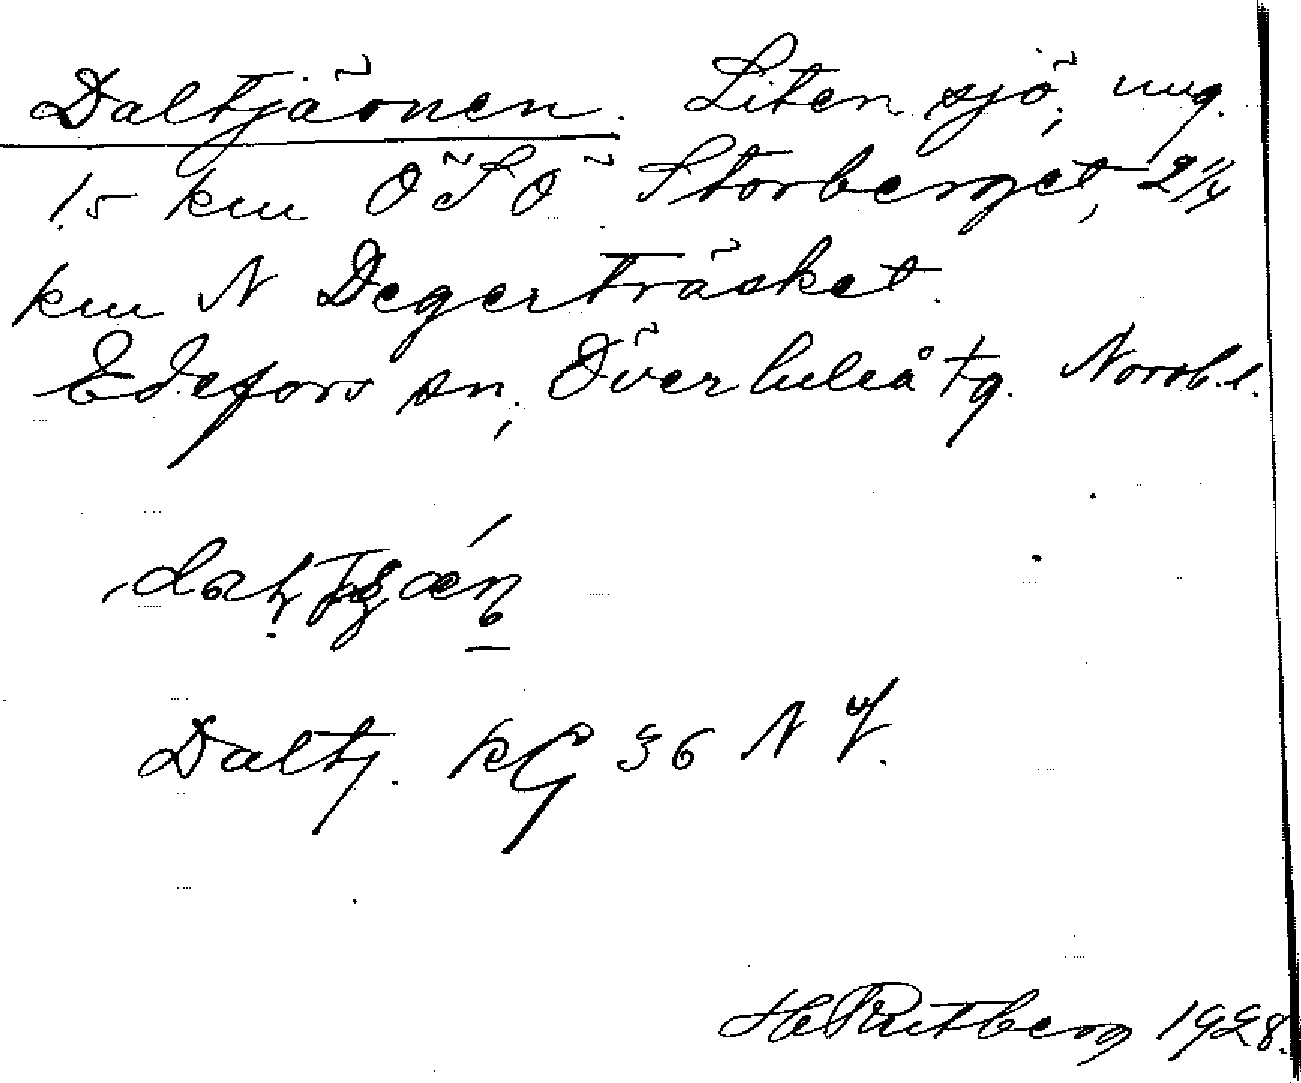 Daltjärnen. Liten sjö, ung.
1.5 km ÖSÖ Storberget, 2 1/4
km N Degerträsket.
Edefors sn, Överluleå tg. Norrb. l.
Daltj. KG 36 NV.
H Rutberg 1928.